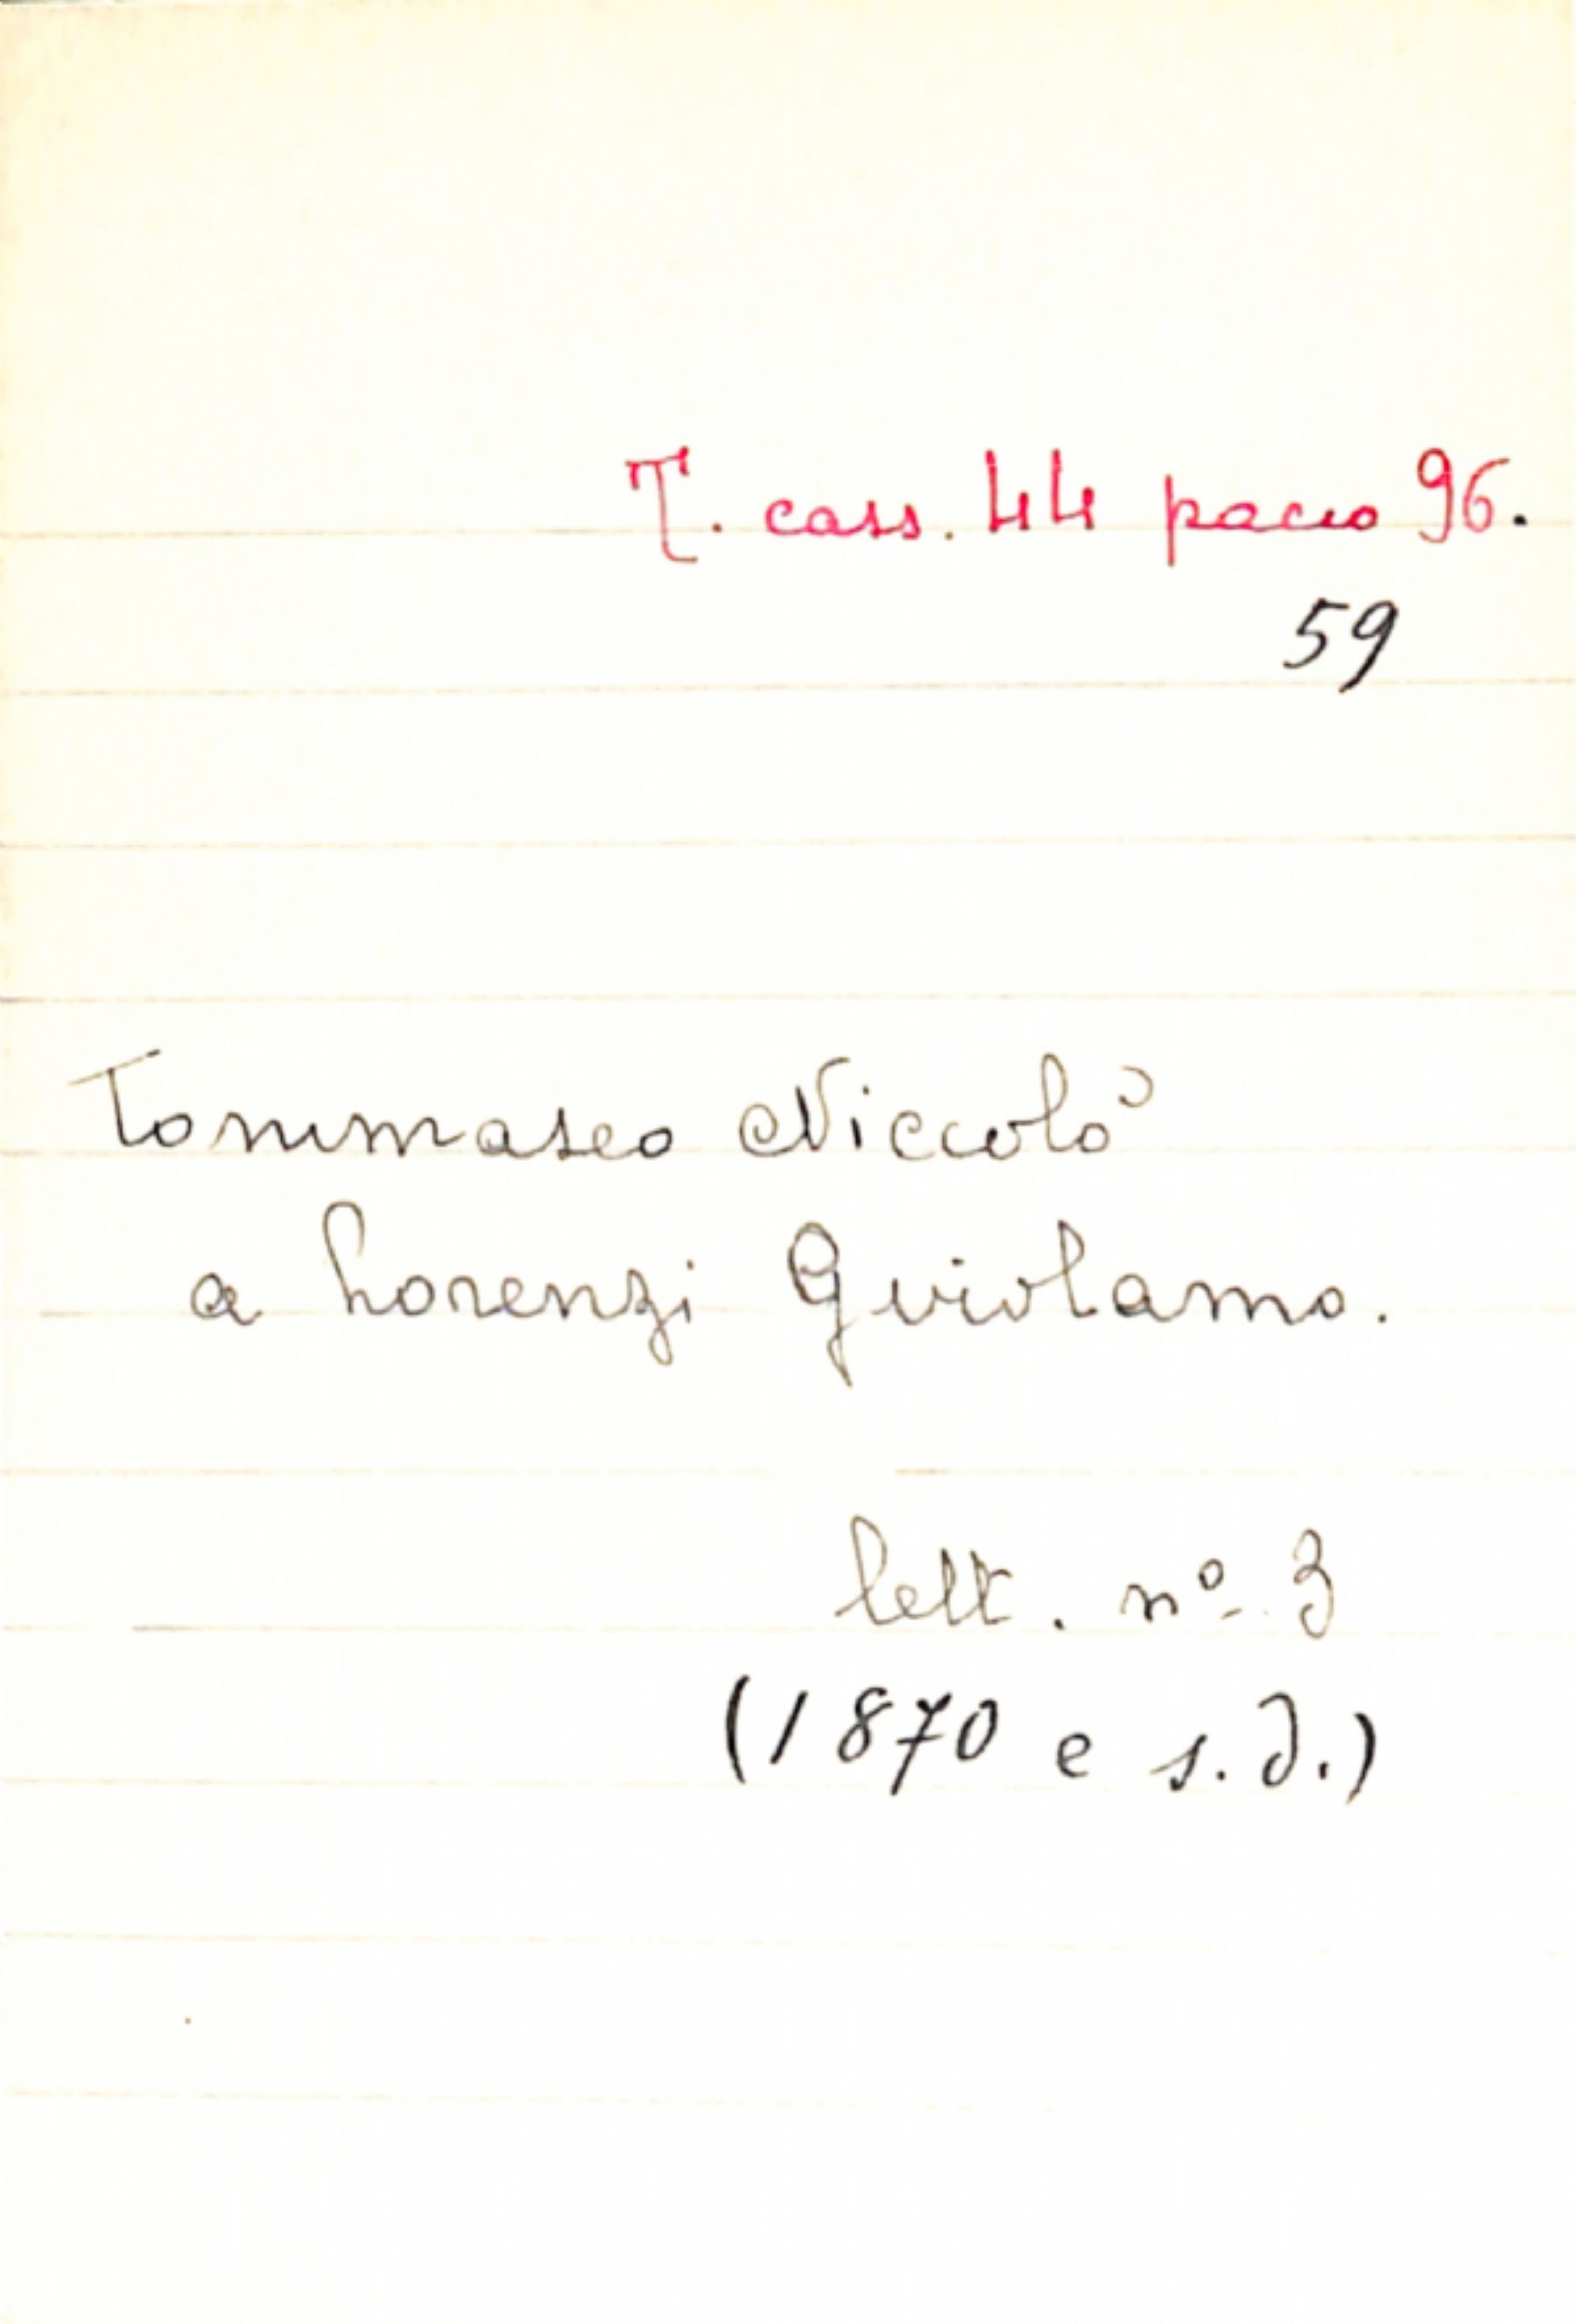 T. cass. 44 pacco 96.
59
Tommaseo Niccolò
a Lorenzi Girolamo.
lett. nº 3
(1870 e s.d.)